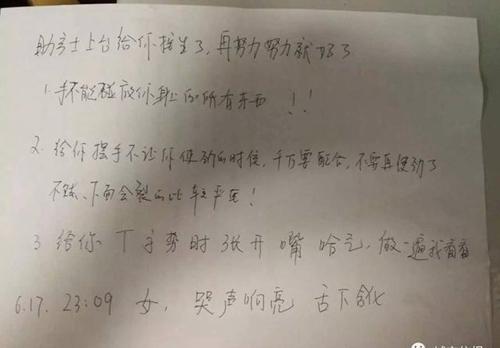 助产士上台给你接生了，再努力努力就好了
1.手不能碰放你身上的所有东西！！
2.给你摆手不让你使劲的时候，千万要配合，不要再使劲了
不然、下面会裂的比较严重！
3 给你丁手势时张开嘴哈气，做一遍我看看
6.17. 23:09 女，哭声响亮 舌下含化